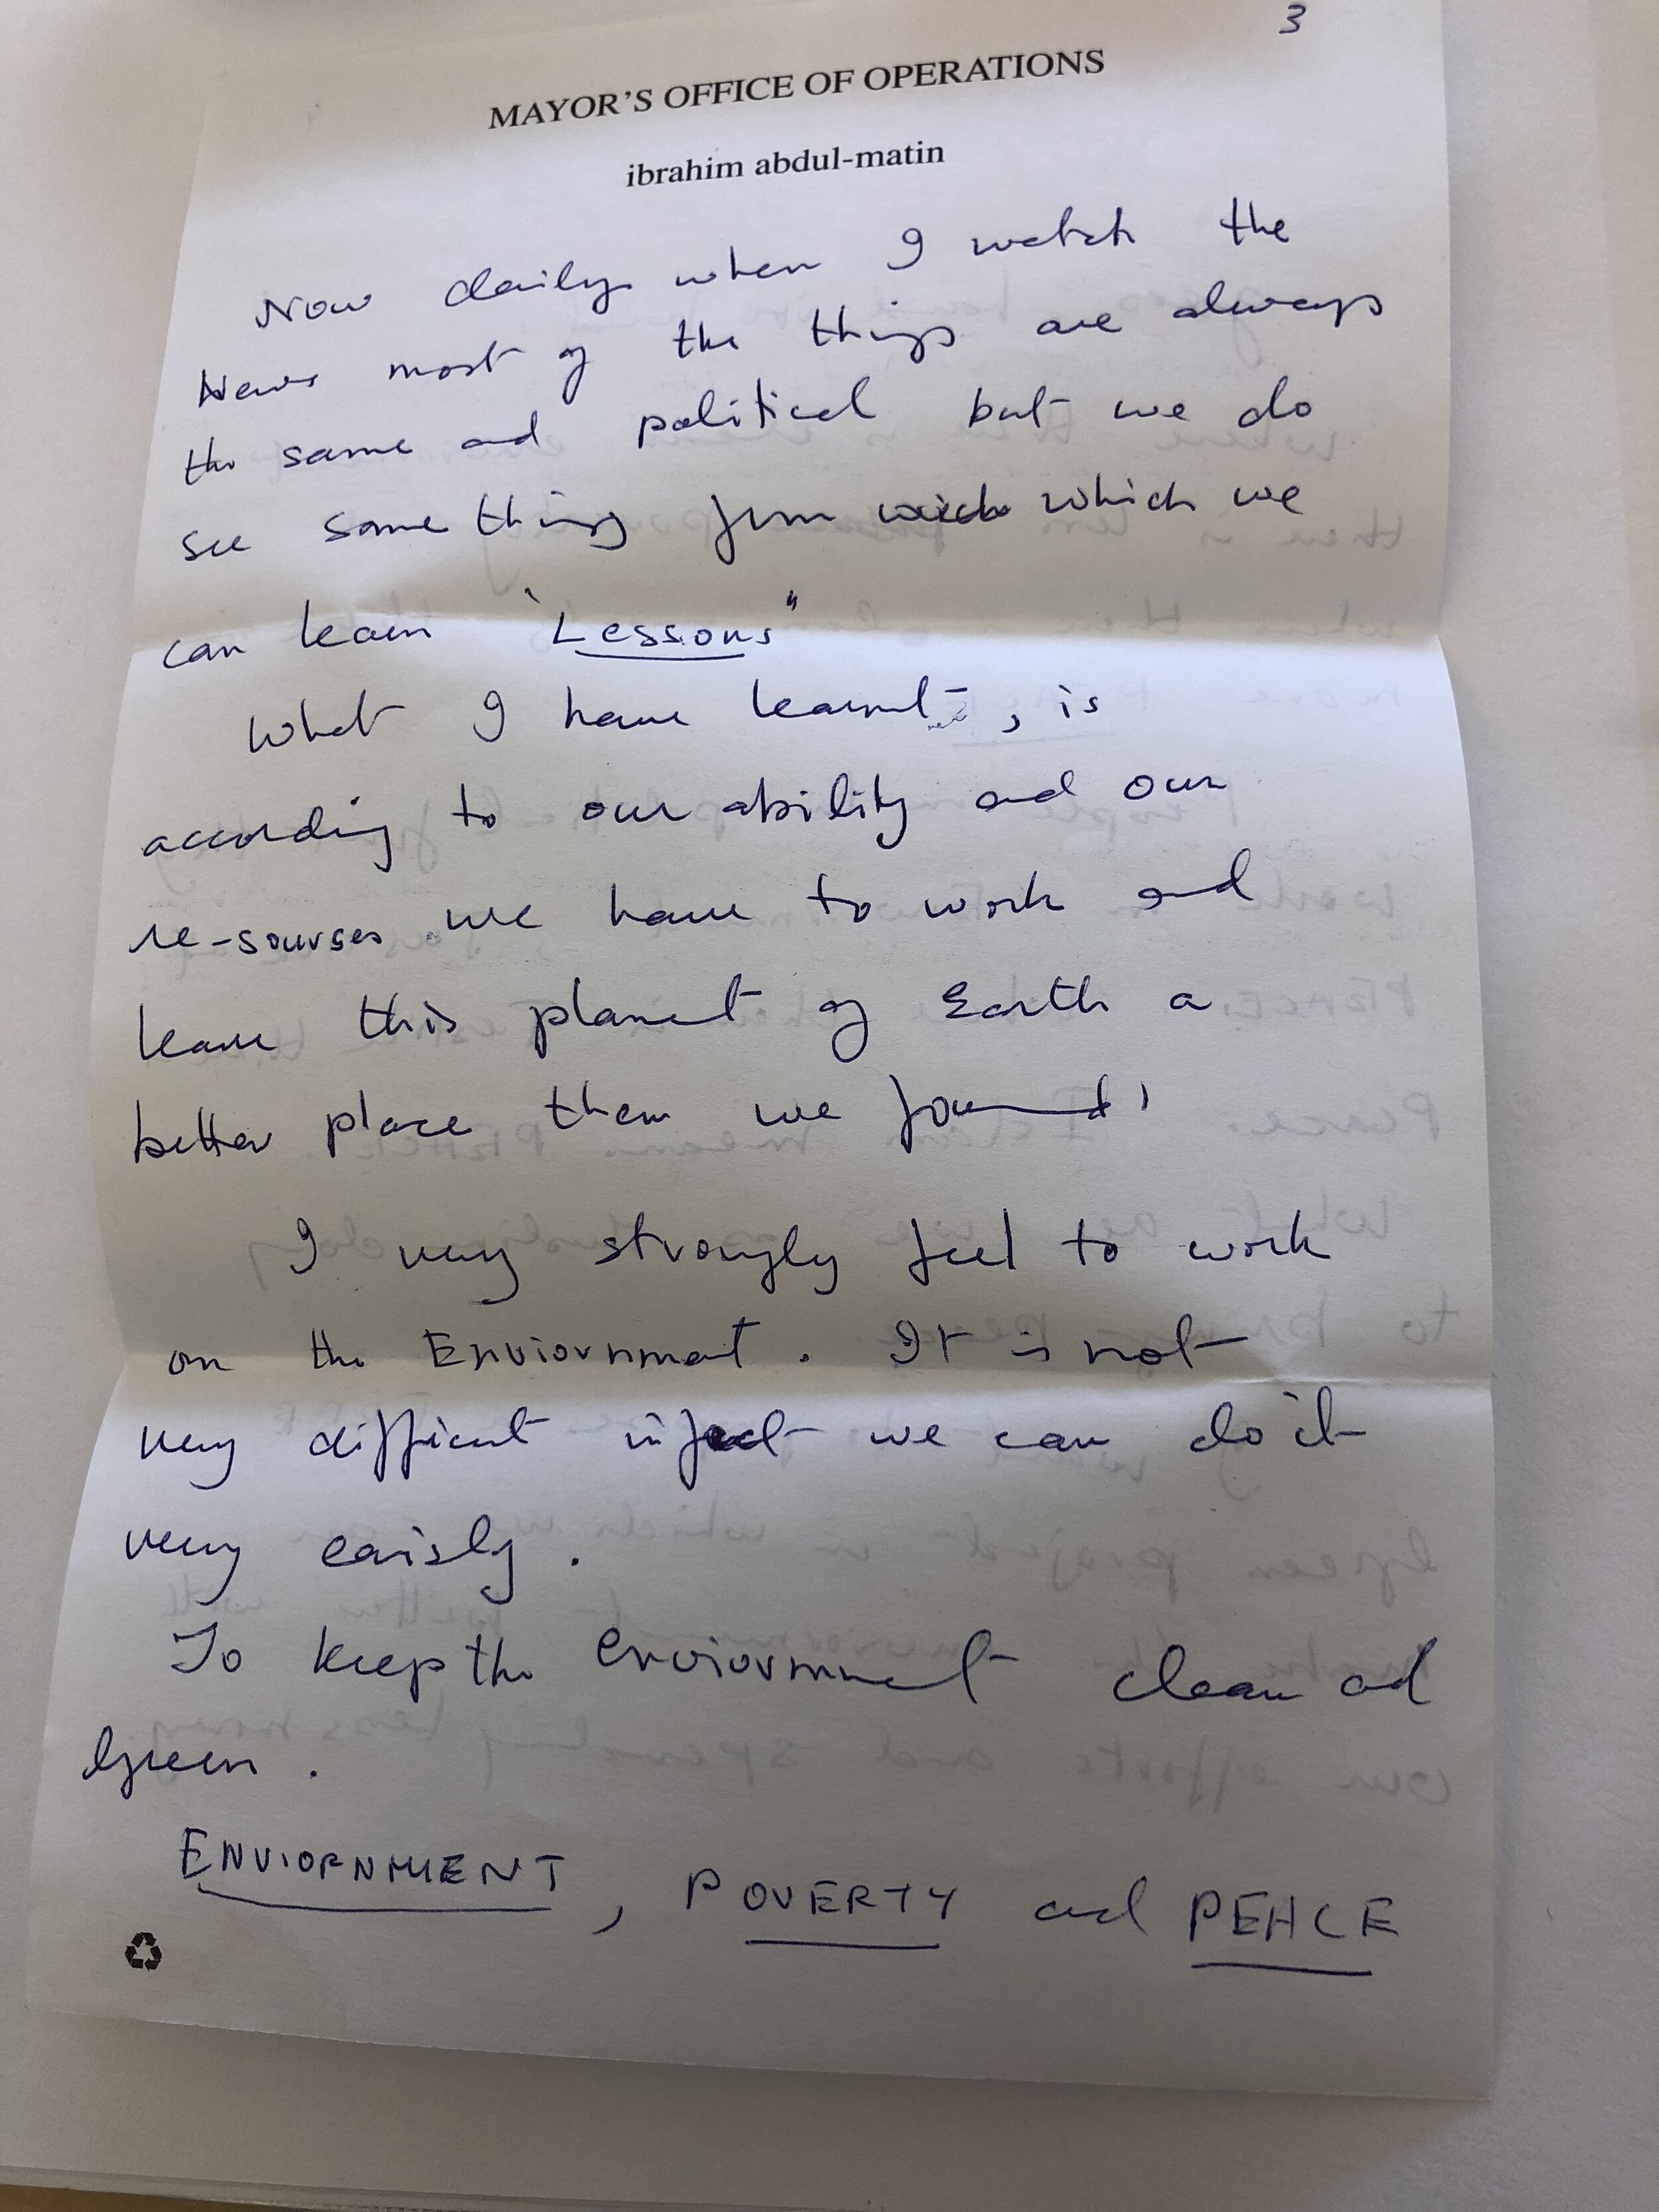 3
MAYOR'S OFFICE OF OPERATIONS
ibrahim abdul-matin
Now daily when I watch the
News most of the things are always
the same and political but we do
see some things from which we
can learn "Lessons"
What I have learnt, is
according to our ability and our
re-sourses we have to work and
leave this planet of Earth a
better place then we found,
I very strongly feel to work
on the Enviornment. It is not
very difficut infact we can do it
very eaisly.
To keep the enviornment clean ad
Green.
ENVIORNMENT, POVERTY and PEACE